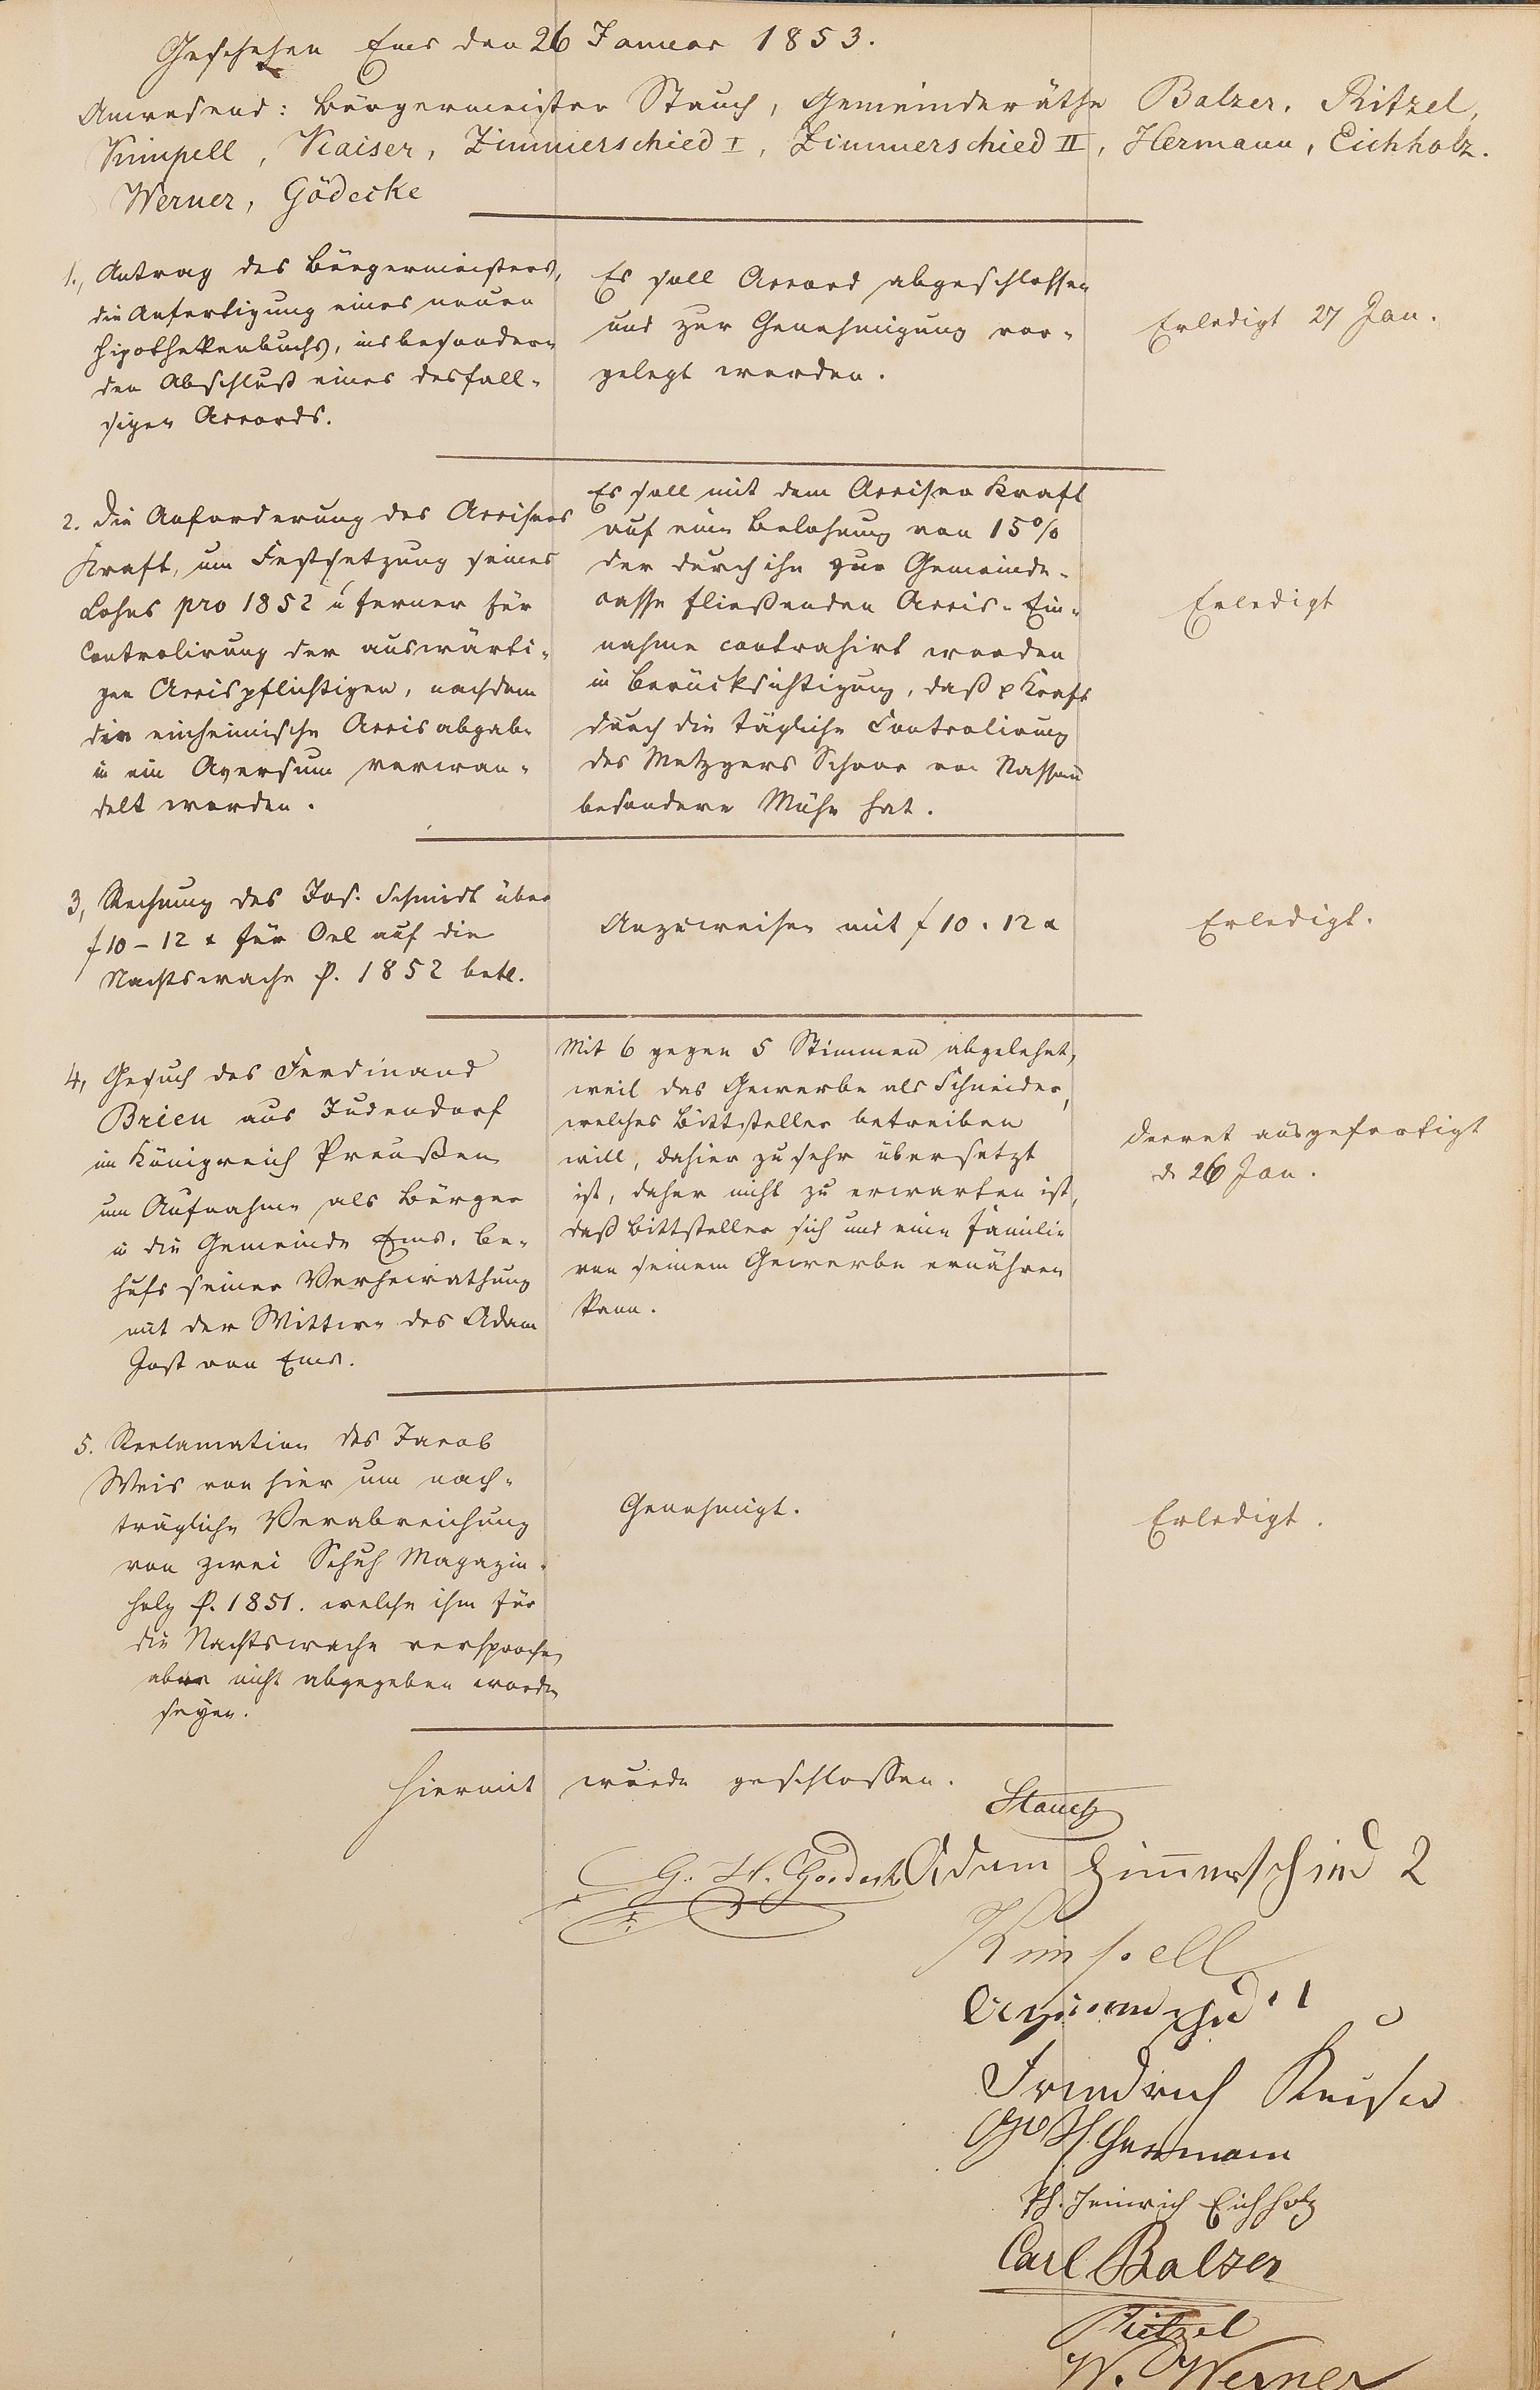 Geschehen Ems den 26 Januar 1853.
Anwesend: Bürgermeister Stauch, Gemeinderäthe Balzer, Ritzel,
Kimpell, Kaiser, Zimmerschied I, Zimmerschied II, Hermann, Eichholz.
Werner, Gödecke
1., Antrag des Bürgermeisters,
die Anfertigung eines neuen
Hipothekenbuchs, insbesondere
den Abschluß eines desfall-
sigen Accords.
Es soll Accord abgeschlossen
und zur Genehmigung vor-
gelegt werden.
Erledigt 27 Jan.
2. Die Anforderung des Accisers
Kraft, um Festsetzung seines
Lohns pro 1852 u ferner für
Controlirung der auswärti-
gen Accispflichtigen, nachdem
die einheimische Accisabgabe
in ein Aversum verwan-
delt worden.
Es soll mit dem Acciser Kraft
auf eine Belohnung von 15%
der durch ihn zur Gemeinde-
casse fließenden Accis-Ein-
nahme contrahirt werden
in Berücksichtigung, daß p Kraft
durch die tägliche Controlirung
des Metzgers Schaar von Nassau
besondere Mühe hat.
Erledigt
3, Rechnung des Jos. Schmidt über
f 10 - 12 x für Oel auf die
Nachtswache p. 1852 betr.
Anzuweisen mit f 10. 12 x
Erledigt.
4, Gesuch des Ferdinand
Brien aus Judendorf
im Königreich Preußen
um Aufnahme als Bürger
in die Gemeinde Ems. Be-
hufs seiner Verheirathung
mit der Wittwe des Adam
Jost von Ems.
Mit 6 gegen 5 Stimmen abgelehnt,
weil das Gewerbe als Schneider,
welches Bittsteller betreiben
will, dahier zu sehr übersetzt
ist, daher nicht zu erwarten ist,
daß Bittsteller sich und eine Familie
von seinem Gewerbe ernähren
kann.
Decret ausgefertigt
d. 26 Jan.
5. Reclamation des Jacob
Weis von hier um nach-
trägliche Verabreichung
von zwei Schuh Magazin-
holz p. 1851. welche ihm für
die Nachtswache versprochen
aber nicht abgegeben worden
seyen.
Genehmigt.
Erledigt.
Hiermit wurde geschlossen.
Stauch
G. H. Goedecke Adam Zimmerschied 2
Kimpell
Friedrich Kaiser
Hermann
Ph. Heinrich Eichholz
Carl Balzer
Ritzel
W. Werner